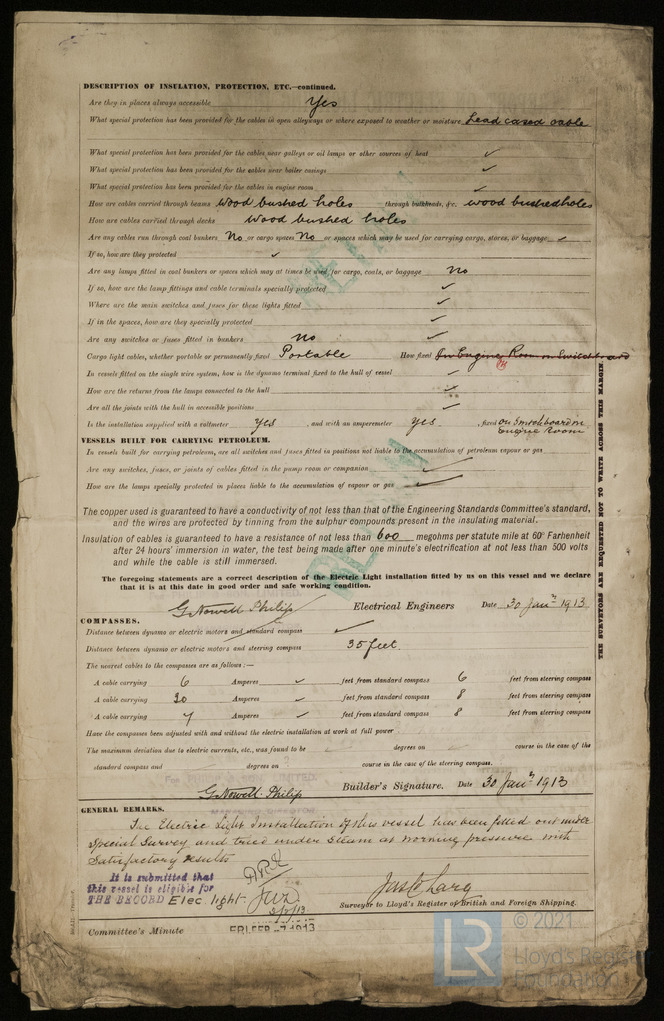 DESCRIPTION OF INSULATION, PROTECTION, ETC.—continued.
Are they in places always accessible Yes
What special protection has been provided for the cables in open alleyways or where exposed to weather or moisture Lead cased cable
What special protection has been provided for the cables near galleys or oil lamps or other sources of heat ✓
What special protection has been provided for the cables near boiler casings ✓
What special protection has been provided for the cables in engine room ✓
How are cables carried through beams Wood bushed holes through bulkheads, &c. wood bushed holes
How are cables carried through decks Wood bushed holes
Are any cables run through coal bunkers No or cargo spaces No or spaces which may be used for carrying cargo, stores, or baggage ✓
If so, how are they protected ✓
Are any lamps fitted in coal bunkers or spaces which may at times be used for cargo, coals, or baggage No
If so, how are the lamp fittings and cable terminals specially protected ✓
Where are the main switches and fuses for these lights fitted ✓
If in the spaces, how are they specially protected ✓
Are any switches or fuses fitted in bunkers no ✓
Cargo light cables, whether portable or permanently fixed Portable How fixed In Engine Room on Switchboard
In vessels fitted on the single wire system, how is the dynamo terminal fixed to the hull of vessel ✓
How are the returns from the lamps connected to the hull ✓
Are all the joints with the hull in accessible positions ✓
Is the installation supplied with a voltmeter yes , and with an amperemeter yes , fixed on Switchboard in
Engine Room
VESSELS BUILT FOR CARRYING PETROLEUM.
In vessels built for carrying petroleum, are all switches and fuses fitted in positions not liable to the accumulation of petroleum vapour or gas
Are any switches, fuses, or joints of cables fitted in the pump room or companion ✓
How are the lamps specially protected in places liable to the accumulation of vapour or gas ✓
The copper used is guaranteed to have a conductivity of not less than that of the Engineering Standards Committee's standard,
and the wires are protected by tinning from the sulphur compounds present in the insulating material.
Insulation of cables is guaranteed to have a resistance of not less than 600 megohms per statute mile at 60° Farhenheit
after 24 hours' immersion in water, the test being made after one minute's electrification at not less than 500 volts
and while the cable is still immersed.
The foregoing statements are a correct description of the Electric Light installation fitted by us on this vessel and we declare
that it is at this date in good order and safe working condition.
G Nowell Philip Electrical Engineers Date 30 Jany 1913
COMPASSES.
Distance between dynamo or electric motors and standard compass ✓
Distance between dynamo or electric motors and steering compass 35 feet.
The nearest cables to the compasses are as follows:—
A cable carrying 6 Amperes ✓ feet from standard compass 6 feet from steering compass
A cable carrying 20 Amperes ✓ feet from standard compass 8 feet from steering compass
A cable carrying 7 Amperes ✓ feet from standard compass 8 feet from steering compass
Have the compasses been adjusted with and without the electric installation at work at full power
The maximum deviation due to electric currents, etc., was found to be degrees on course in the case of the
standard compass and degrees on course in the case of the steering compass.
G Nowell Philip Builder's Signature. Date 30 Jany 1913
GENERAL REMARKS.
The Electric Light Installation of this vessel has been fitted out under
Special Survey and tried under Steam at working pressure with
Satisfactory results
It is submitted that
this vessel is eligible for
THE RECORD Elec. light
Surveyor to Lloyd's Register of British and Foreign Shipping.
Committee's Minute FRI. FEB. -7 1913
THE SURVEYORS ARE REQUESTED NOT TO WRITE ACROSS THIS MARGIN.
LR
© 2021
Lloyd's Register
Foundation